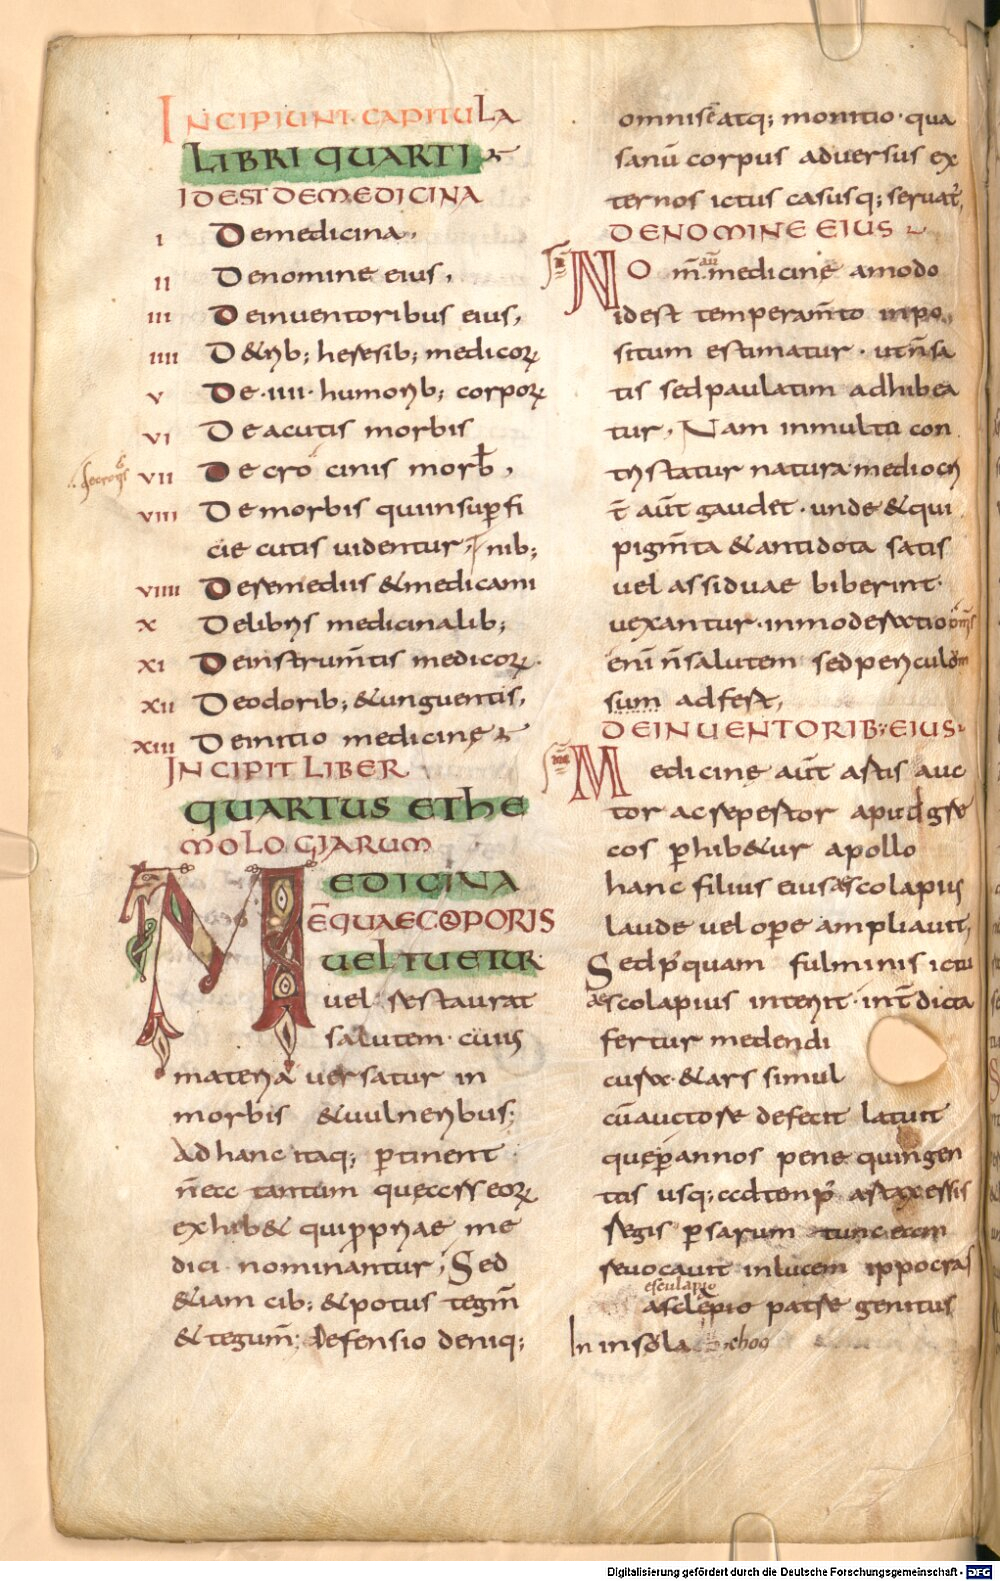 INCIPIUNT CAPITULA
LIBRI QUARTI
IDEST DEMEDICINA
I Demedicina.
II Denomine eius,
III Deinuentoribus eius,
IIII D&rib; heresib; medicorꝝ
V De·IIII·humorib; corporꝝ
VI Deacutis morbis
VII De cro cinis morb̄,
VIII Demorbis quiinsuꝑfi
cie cutis uidentur, nib;
VIIII Deremediis &medicami
X Delibris medicinalib;
XI Deinstrum̄tis medicorꝝ.
XII Deodorib; &unguentis,
XIII Deinitio medicinę
INCIPIT LIBER
QUARTUS ETHE
MOLOGIARUM
MEDICINA
ē QUAE CORPORIS
UEL TUETUR
uel restaurat
salutem· cuius
materia uersatur in
morbis &uulneribus;
Ad hanc itaq; ꝑtinent
n̄ ea tantum quę arseorꝝ
exhib& qui ꝓpriae me
dici nominantur, Sed
&iam cib; &potus tegm̄
&tegum̄; defensio deniq;
omnis ē atq; monitio· qua
sanū corpus aduersus ex
ternos ictus casusq; seruat᷑,
DENOMINE EIUS
II NO m̄ aū medicinę amodo
idest temperam̄to inpo
situm estimatur· ut n̄ sa
tis sedpaulatim adhibea
tur, Nam inmulta con
tristatur natura mediocri
t̄ aūt gaudet· unde &qui
pigm̄ta &antidota satis
uel assiduae biberint·
uexantur· inmoderatio om̄s
enī n̄ salutem sed periculū
sum adfert,
DEINUENTORIB; EIUS·
III Medicinę aūt artis auc
tor ac repertor apud gre
cos ꝑhib&ur apollo
hanc filius eius aescolapius
laude uel oꝑe ampliauit,
Sed p̄quam fulminis ictu
aescolapius interiit· int̄dicta
fertur medendi
cura· &ars simul
cū auctore defecit latuit
quę ꝑ annos pene quingen
tos usq; ad temp̄ artaxessis
regis ꝑsarum tunc eam
reuocauit inlucem ippocras
esculapio
asclepio patre genitus
In insola choo